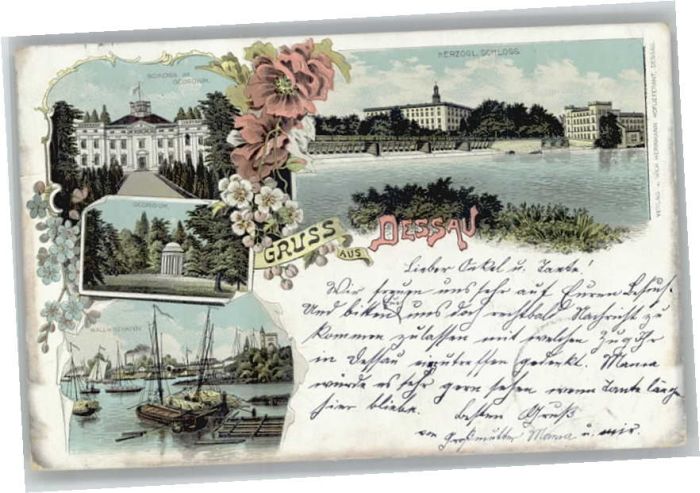 SCHLOSS IM
GEORGIUM.
HERZOGL. SCHLOSS.
GEORGIUM.
WALLWITZHAFEN
GRUSS
AUS
DESSAU
VERLAG v. HERRMANN HOFLIEFERANT, DESSAU.
Lieber Onkel u. Tante!
Wir freuen uns sehr auf Euren Besuch.
Und bitten Euch uns doch rechtbald Nachricht zu
kommen zulassen mit welchen Zug Ihr
in Dessau einzutreffen gedenkt. Mama
würde es sehr gern sehen wenn Tante länger
hier bliebe. Besten Gruß
von Großmutter Mama u. mir.